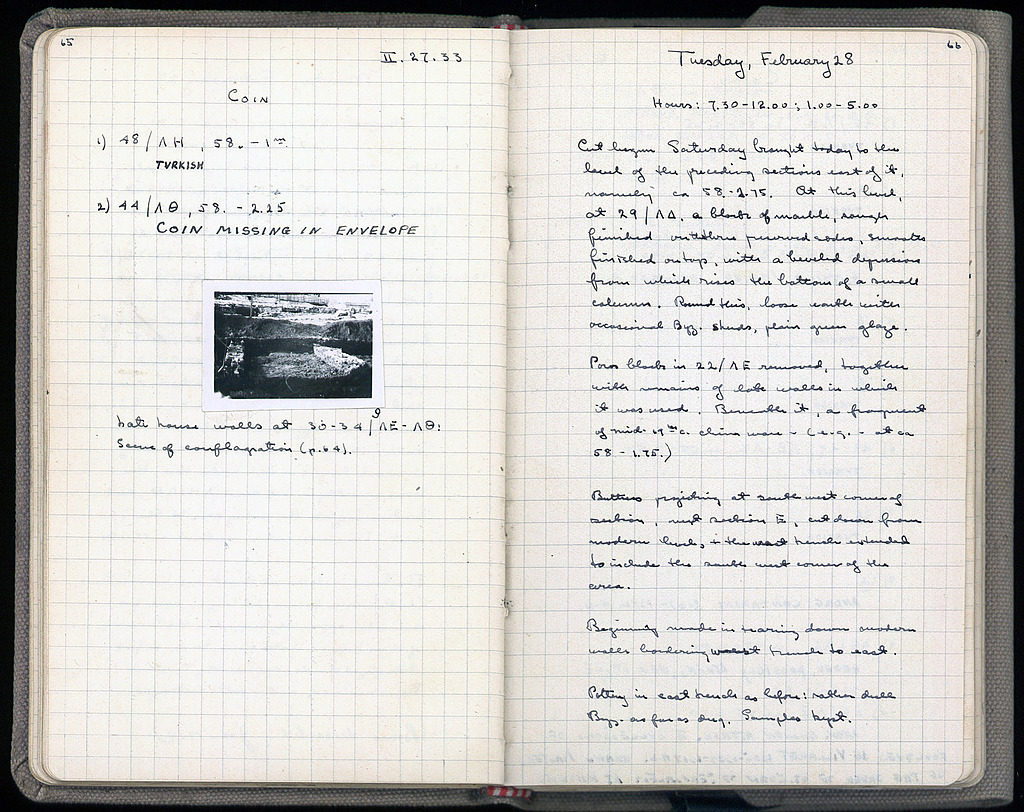 65
II.27.33
COIN
1) 48/ΛΗ, 58. - 1 m
TURKISH
2) 44/ΛΘ, 58. - 2.25
COIN MISSING IN ENVELOPE
Late house walls at 30-34/ΛΕ-ΛΘ:
Scene of conflagration (p.64).
66
Tuesday, February 28
Hours: 7.30-12.00; 1.00-5.00
Cut begun Saturday brought today to the
level of the preceding sections east of it,
namely ca 58.-2.75. At this level,
at 29/ΛΔ, a block of marble, rough
finished on three preserved sides, smooth
finished on top, with a beveled depression
from which rises the bottom of a small
column. Round this, loose earth with
occasional Byz. sherds, plain green glaze.
Poros block in 22/ΛΕ removed, together
with remains of late walls in which
it was used. Beneath it, a fragment
of mid-19th c. china ware - (e.g. - at ca
58 - 1.75.)
Buttress projecting at south west corner of
section, next section E, cut down from
modern level, + the west trench extended
to include the south west corner of the
area.
Beginning made in tearing down modern
walls bordering trench to east.
Pottery in east trench as before: rather dull
Byz. as far as dug. Samples kept.